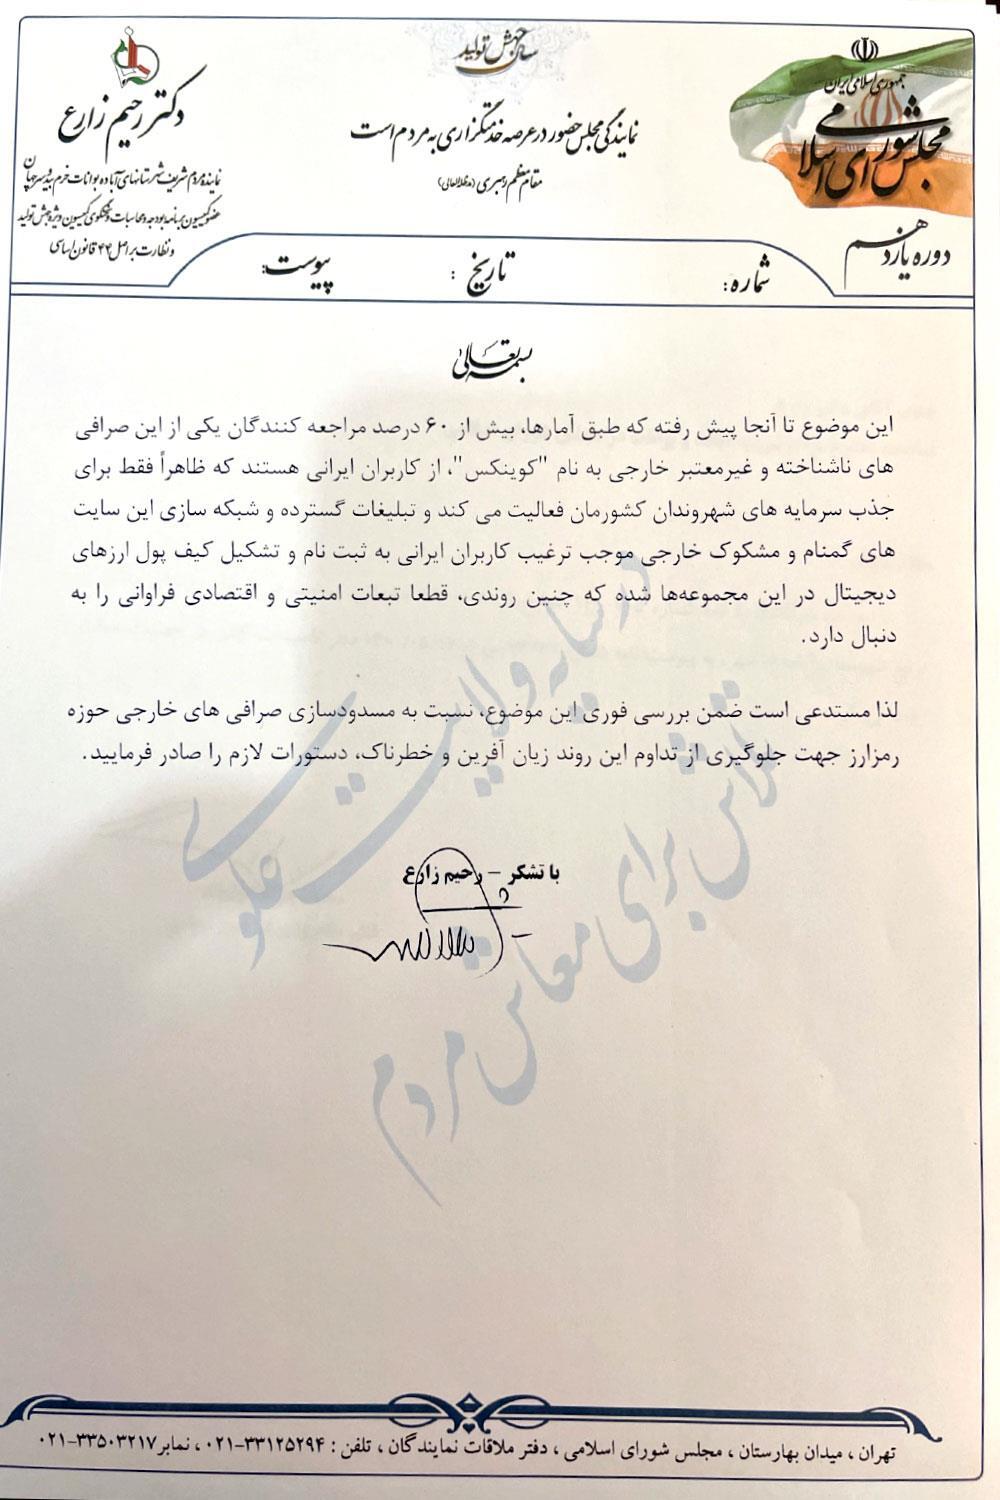 سال جهش تولید
جمهوری اسلامی ایران
مجلس شورای اسلامی
دوره یازدهم
نمایندگی مجلس حضور در عرصه خدمتگزاری به مردم است
مقام معظم رهبری (مدظله العالی)
دکتر رحیم زارع
نماینده مردم شریف شهرستانهای آباده بوانات خرم بید و سرچهان
عضو کمیسیون برنامه بودجه و محاسبات و سخنگوی کمیسیون ویژه جهش تولید
و نظارت بر اصل ۴۴ قانون اساسی
شماره:
تاریخ :
پیوست:
بسمه تعالی
این موضوع تا آنجا پیش رفته که طبق آمارها، بیش از ۶۰ درصد مراجعه کنندگان یکی از این صرافی
های ناشناخته و غیرمعتبر خارجی به نام "کوینکس"، از کاربران ایرانی هستند که ظاهراً فقط برای
جذب سرمایه های شهروندان کشورمان فعالیت می کند و تبلیغات گسترده و شبکه سازی این سایت
های گمنام و مشکوک خارجی موجب ترغیب کاربران ایرانی به ثبت نام و تشکیل کیف پول ارزهای
دیجیتال در این مجموعه‌ها شده که چنین روندی، قطعا تبعات امنیتی و اقتصادی فراوانی را به
دنبال دارد.
لذا مستدعی است ضمن بررسی فوری این موضوع، نسبت به مسدودسازی صرافی های خارجی حوزه
رمزارز جهت جلوگیری از تداوم این روند زیان آفرین و خطرناک، دستورات لازم را صادر فرمایید.
با تشکر – رحیم زارع
در سایه ولایت علوی
تلاش برای معاش مردم
تهران ، میدان بهارستان ، مجلس شورای اسلامی ، دفتر ملاقات نمایندگان ، تلفن : ۳۳۱۲۵۲۹۴-۰۲۱ ، نمابر ۳۳۵۰۳۲۱۷-۰۲۱